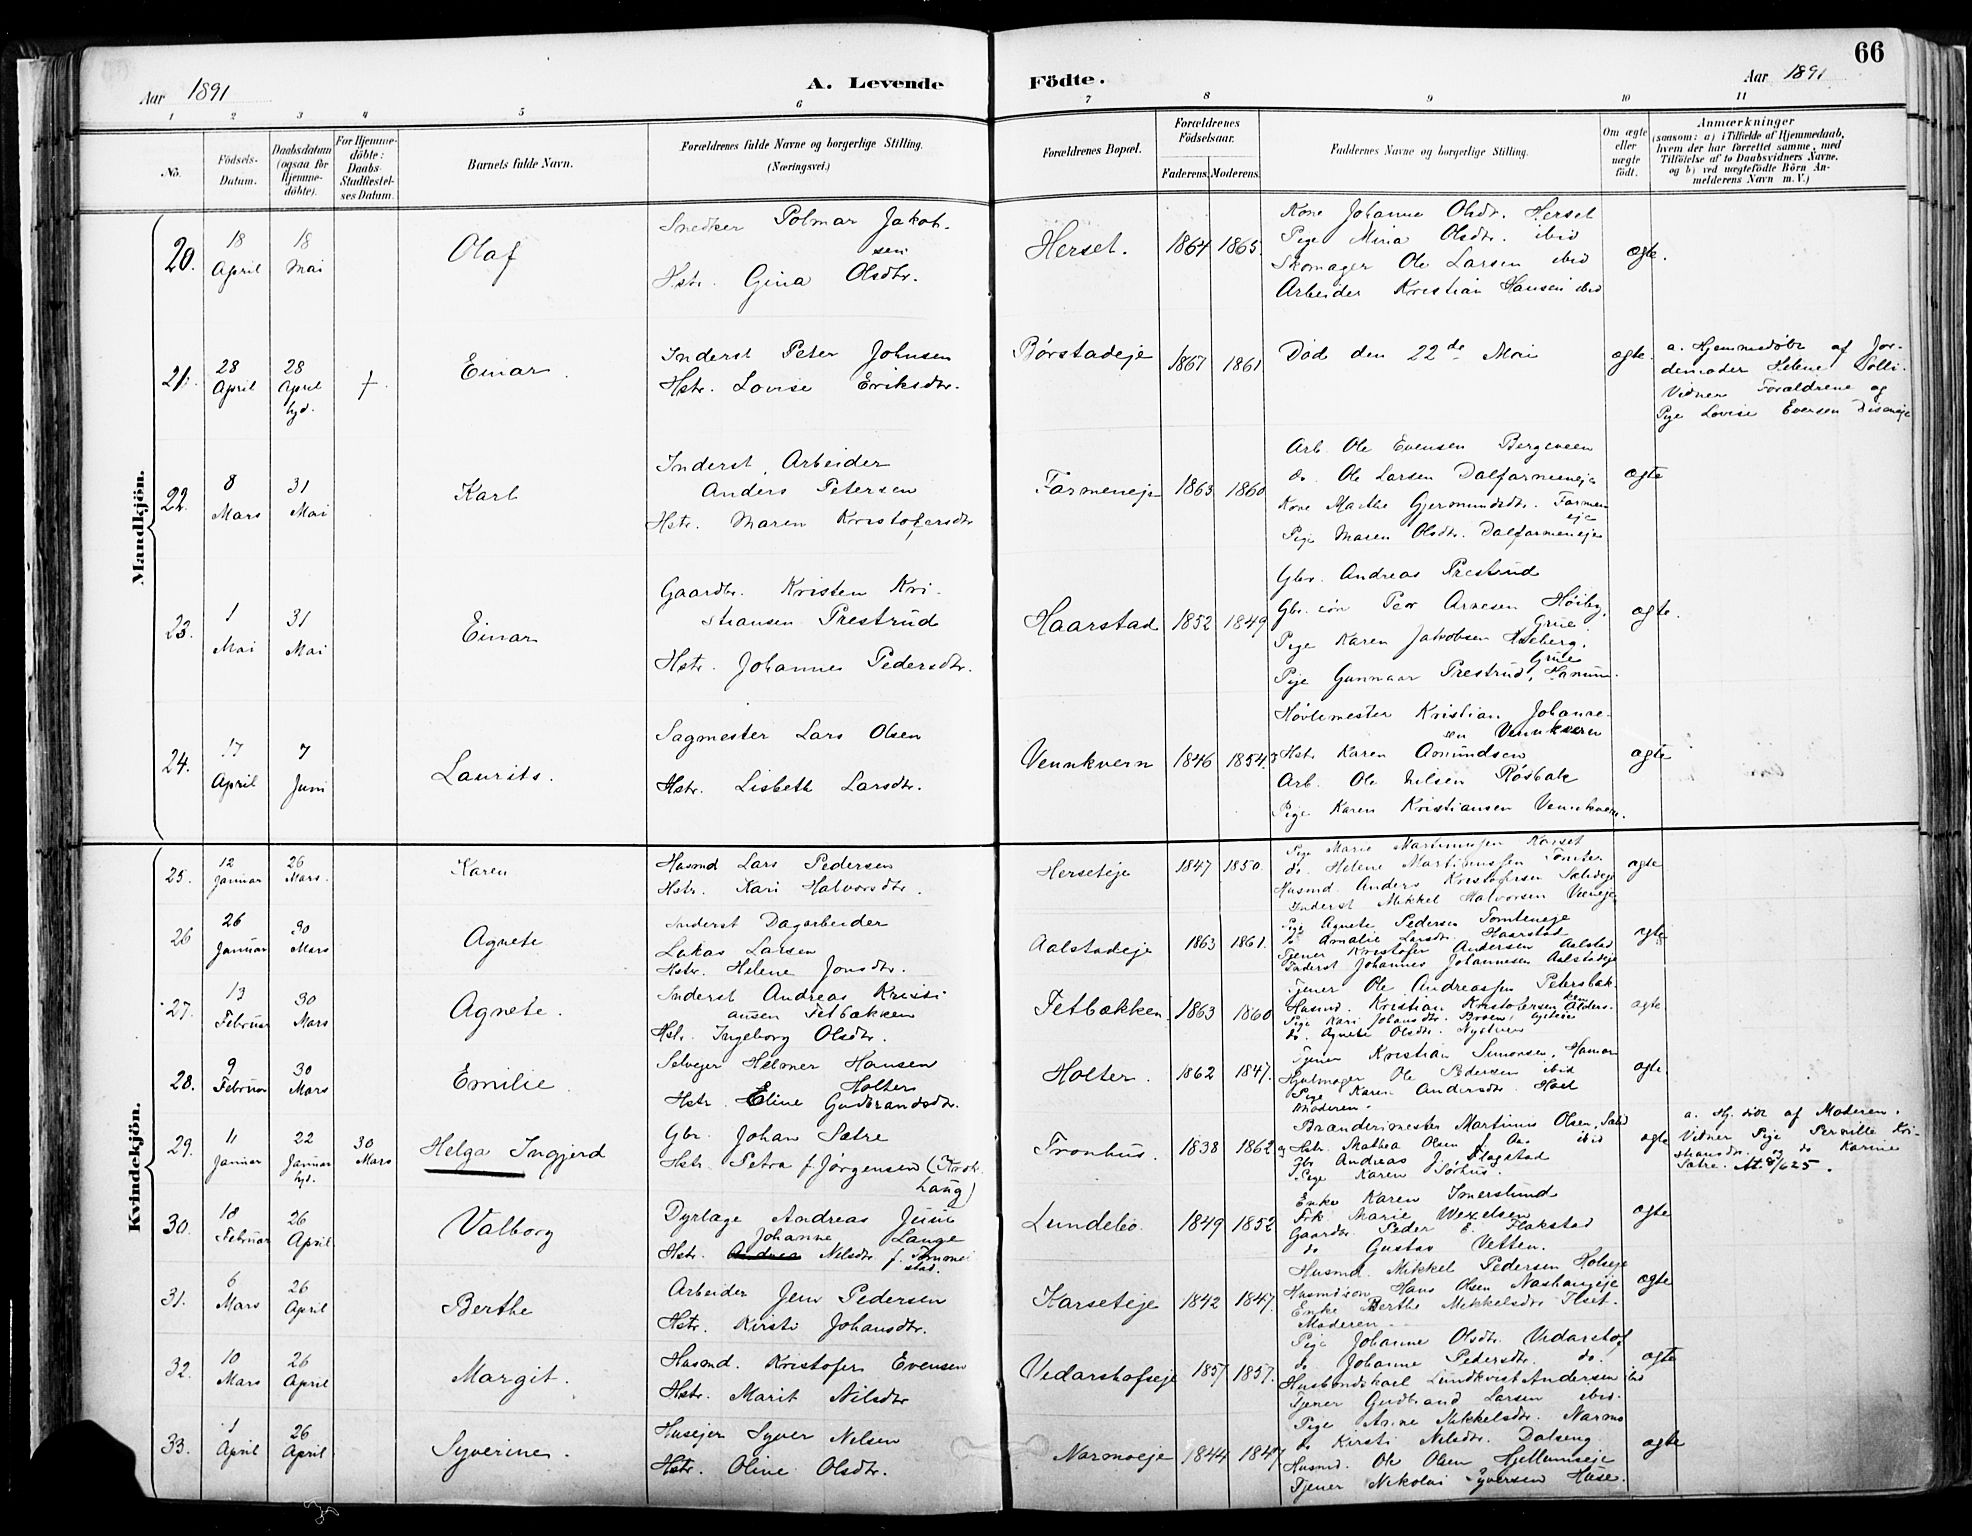 66
Aar 1891
A. Levende
Födte.
Aar 1891
1 2 3 4 5 6 7 8 9 10 11
No.
Födsels-Datum.
Daabsdatum (ogsaa for Hjemme-döbte).
For Hjemme-döbte: Daabs-Stadfæstel-ses Datum.
Barnets fulde Navn.
Forældrenes fulde Navne og borgerlige Stilling. (Næringsvei.)
Forældrenes Bopæl.
Forældrenes Födselsaar.
Faderens. Moderens.
Faddernes Navne og borgerlige Stilling.
Om ægte eller uægte födt.
Anmærkninger
(saasom: a) i Tilfælde af Hjemmedaab,
hvem der har forrettet samme, med
Tilföielse af to Daabsvidners Navne,
og b) ved uægtefödte Börn An-
melderens Navn m. V.)
Mandkjön.
20. 18 April 18 Mai Olaf
Snedker Polmar Jakob-
sen
Hstr. Gina Olsdtr.
Herset. 1864 1865.
Kone Johanne Olsdtr. Herset
Pige Mina Olsdtr. ibid
Skomager Ole Larsen ibid
Arbeider Kristian Hansen ibid
ægte.
21. 28 April 28 April hjd. † Einar.
Inderst Peter Johnsen
Hstr. Lovise Eriksdtr.
Børstadeje 1867 1861
Død den 22de Mai
ægte.
a. Hjemmedøbt af Jor-
demoder Helene Solli.
Vidner Forældrene og
Pige Lovise Evensen Diseneje
22. 8 Mars 31 Mai Karl
Inderst, Arbeider
Anders Petersen
Hstr. Maren Kristofersdtr
Farmeneje 1863 1860
Arb. Ole Evensen Bergeveen
do. Ole Larsen Dalfarmeneje
Kone Marthe Gjermundsdtr. Farmen
eje
Pige Maren Olsdtr. Dalfarmeneje
ægte
23. 1 Mai 31 Mai Einar
Gaardbr. Kristen Kri-
stiansen Prestrud
Hstr. Johannes Pedersdtr.
Haarstad 1852 1849
Gbr. Andreas Prestrud
Gbr. søn Peer Arnesen Høiby,
Grue.
Pige Karen Jakobsen Haeberg,
Grue
Pige Gunnaar Prestrud,
ægte.
24. 17 April 7 Juni Laurits.
Sagmester Lars Olsen
Hstr. Lisbeth Larsdtr.
Vennkvern 1846 1854.
Høvlemester Kristian Johanne-
sen Vennkvern
Hstr. Karen Amundsen
Arb. Ole Nilsen Røsbak
Pige Karen Kristiansen Vennkvern.
ægte
Kvindekjön.
25. 12 Januar 26 Mars. Karen
Husmd Lars Pedersen
Hstr. Kari Halvorsdtr.
Herseteje 1847 1850.
Pige Marie Martinussen Korset
do. Helene Martinussen Tomter
Husmd Anders Kristofersen
Inderst Mikkel Halvorsen
ægte
26 26 Januar 30 Mars Agnete
Inderst Dagarbeider
Lukas Larsen
Hstr. Helene Jonsdtr.
Aalstadeje 1863 1861.
Pige Agnete Pedersen Tomteneje
do Amalie Larsdtr. Haarstad
Tjener Kristofer Andersen Aalstad
Inderst Johannes Johannesen Aalstadeje
ægte
27. 13 Februar 30 Mars Agnete.
Inderst Andreas Kristi
ansen Fetbækken
Hstr. Ingeborg Olsdtr.
Fetbækken 1863 1860
Tjener Ole Andreassen Petersbak.
Husmd. Kristian Kristofersen
Pige Kari Johansdtr.
do. Agnete Olsdtr. Nystuen
ægte.
28. 9 Februar 30 Mars Emilie.
Selvejer Helmer Hansen
Holter
Hstr. Eline Gudbrandsdtr.
Holter. 1862 1847.
Tjener Kristian Simonsen, Hamar
Hjulmager Ole Pedersen ibid
Pige Karen Andersdtr. Hoel
Moderen.
ægte.
29. 11 Januar 22 Januar hjd. 30 Mars Helga Ingjerd
Gbr. Johan Sætre
Hstr. Petra f. Jørgensen (Hvok-
haug)
Tronhus. 1838 1862
Brænderimester Martinus Olsen,
Hstr. Mathea Olsen f. Aas ibid
Gbr Andreas J. Flagstad
Pige Karen Sørhus.
ægte
a. Hj. døbt af Moderen.
Vidner Pige Pernille Kri-
stiansdtr. og do Karine
Sætre.
30. 18 Februar 26 April. Valborg
Dyrlæge Andreas
Johanne Lange
Hstr. Andrea Nilsdtr f. Tommel
stad.
Lundebo. 1849 1852
Enke Karen Imerslund
Frk. Marie Wexelsen
Gaardbr. Peder E. Flakstad
do Gustav Vetten.
ægte
31. 6 Mars 26 April Berthe
Arbeider Jens Pedersen
Hstr. Kirsti Johansdtr.
Karseteje 1842 1847.
Husmd. Mikkel Pedersen Holseje
Husmdsøn Hans Olsen Nashaugeje
Enke Berthe Mikkelsdtr Ilset.
Moderen.
ægte
32. 10 Mars 26 April Margit.
Husmd. Kristofer Evensen
Hstr. Marit Nilsdtr
Vedarstofseje 1857 1857.
Pige Johanne Olsdtr. Vidarstof
do. Johanne Pedersdtr. do.
Husbondskarl Lundkvist Andersen ibid
Tjener Gudbrand Larsen ibid.
ægte
33. 1 April 26 April Syverine.
Husejer Syver Nilsen
Hstr. Oline Olsdtr.
Narmoeje 1844 1847.
Pige Anne Mikkelsdtr. Narmo
do Kirsti Nilsdtr. Dalseng
Husmd. Ole Olsen Hjellumseje
Tjener Nikolai Syversen Huse.
ægte